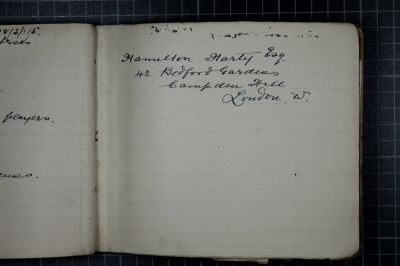 18/2/15.
players.
Hamilton Harty Esq.
42 Bedford Gardens
Campden Hill
London. W.